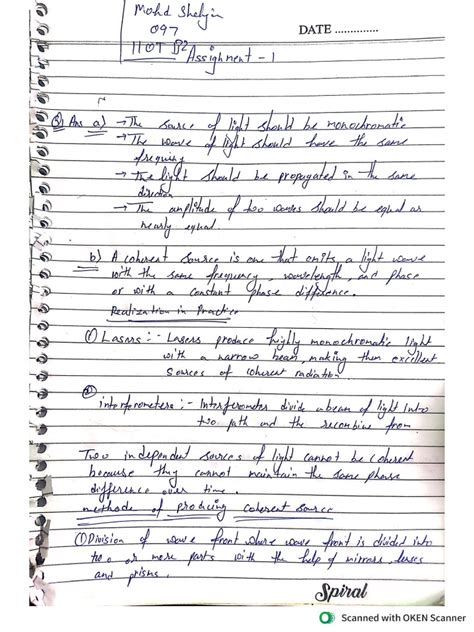 Mohd Shehjin
097
IIOT B2
DATE ..............
Assighment - 1
Q) Ans a) → The source of light should be monochromatic
→ The wave of light should have the same
frequincy
→ The light should be propagated in the same
direction
→ The amplitude of two waves should be equal or
nearly equal
b) A coherent source is one that emits a light wave
with the same frequency, wavelength, and phase
or with a constant phase difference.
Realization in Practice
(1) Lasers :- Lasers produce highly monochromatic light
with a narrow beam, making them excellent
sources of coherent radiation
(2)
interferometers :- Interferometer divide a beam of light into
two path and the recombine from.
Two independent sources of light cannot be coherent
because they cannot maintain the same phase
difference over time.
methods of producing coherent source
(1) Division of wave front where wave front is divided into
two or more parts with the help of mirrors, lenses
and prisms.
Spiral
Scanned with OKEN Scanner